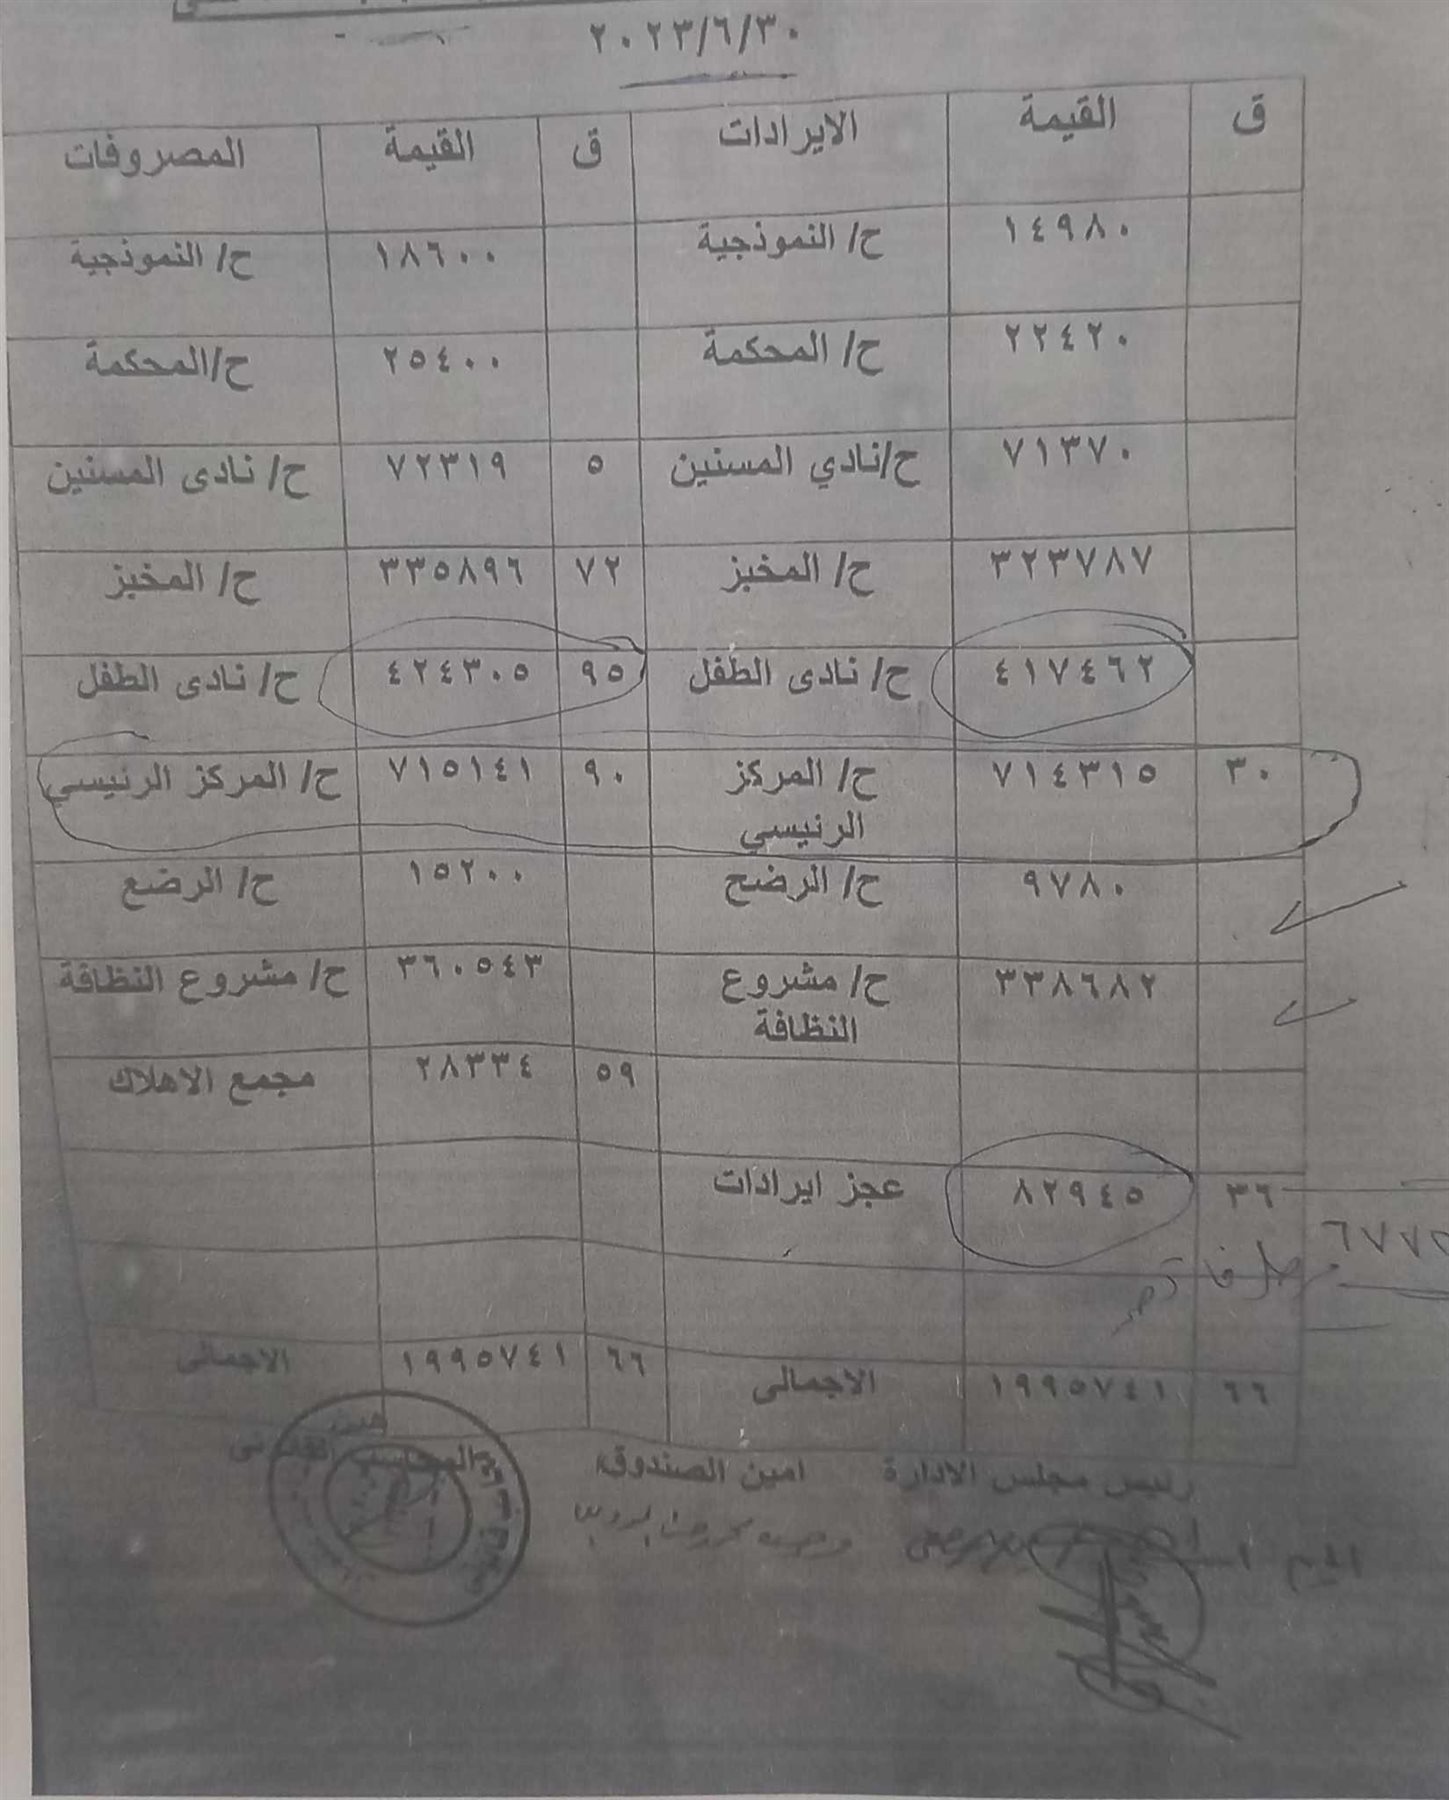 ٢٠٢٣/٦/٣٠
ق القيمة الايرادات ق القيمة المصروفات
١٤٩٨٠ ح/ النموذجية ١٨٦٠٠ ح/ النموذجية
٢٢٤٢٠ ح/ المحكمة ٢٥٤٠٠ ح/المحكمة
٧١٣٧٠ ح/نادي المسنين ٥ ٧٢٣١٩ ح/ نادى المسنين
٣٢٣٧٨٧ ح/ المخبز ٧٢ ٣٣٥٨٩٦ ح/ المخبز
٤١٧٤٦٢ ح/ نادى الطفل ٩٥ ٤٢٤٣٠٥ ح/ نادى الطفل
٣٠ ٧١٤٣١٥ ح/ المركز ٩٠ ٧١٥١٤١ ح/ المركز الرئيسي
الرئيسي
٩٧٨٠ ح/ الرضح ١٥٢٠٠ ح/ الرضع
٣٣٨٦٨٢ ح/ مشروع ٣٦٠٥٤٣ ح/ مشروع النظافة
النظافة
٥٩ ٢٨٣٣٤ مجمع الاهلاك
٣٦ ٨٢٩٤٥ عجز ايرادات
٦٦ ١٩٩٥٧٤١ الاجمالى ٦٦ ١٩٩٥٧٤١ الاجمالى
رئيس مجلس الادارة امين الصندوق